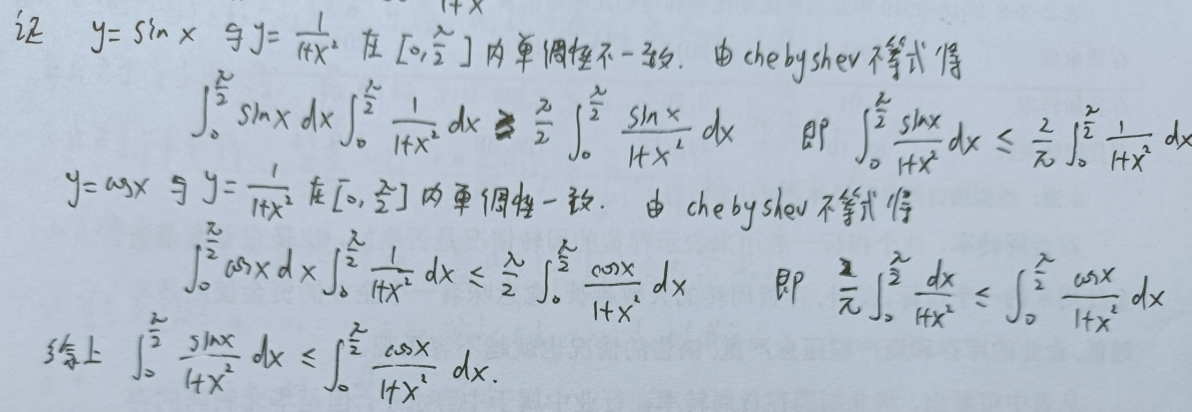 1+x
证 y=sin x 与 y= 1/(1+x²) 在 [0, π/2] 内单调性不一致. 由 chebyshev 不等式得
∫₀^{π/2} sin x dx ∫₀^{π/2} 1/(1+x²) dx ≥ π/2 ∫₀^{π/2} sin x/(1+x²) dx 即 ∫₀^{π/2} sin x/(1+x²) dx ≤ 2/π ∫₀^{π/2} 1/(1+x²) dx
y=cos x 与 y= 1/(1+x²) 在 [0, π/2] 内单调性一致. 由 chebyshev 不等式得
∫₀^{π/2} cos x dx ∫₀^{π/2} 1/(1+x²) dx ≤ π/2 ∫₀^{π/2} cos x/(1+x²) dx 即 2/π ∫₀^{π/2} dx/(1+x²) ≤ ∫₀^{π/2} cos x/(1+x²) dx
综上 ∫₀^{π/2} sin x/(1+x²) dx ≤ ∫₀^{π/2} cos x/(1+x²) dx.